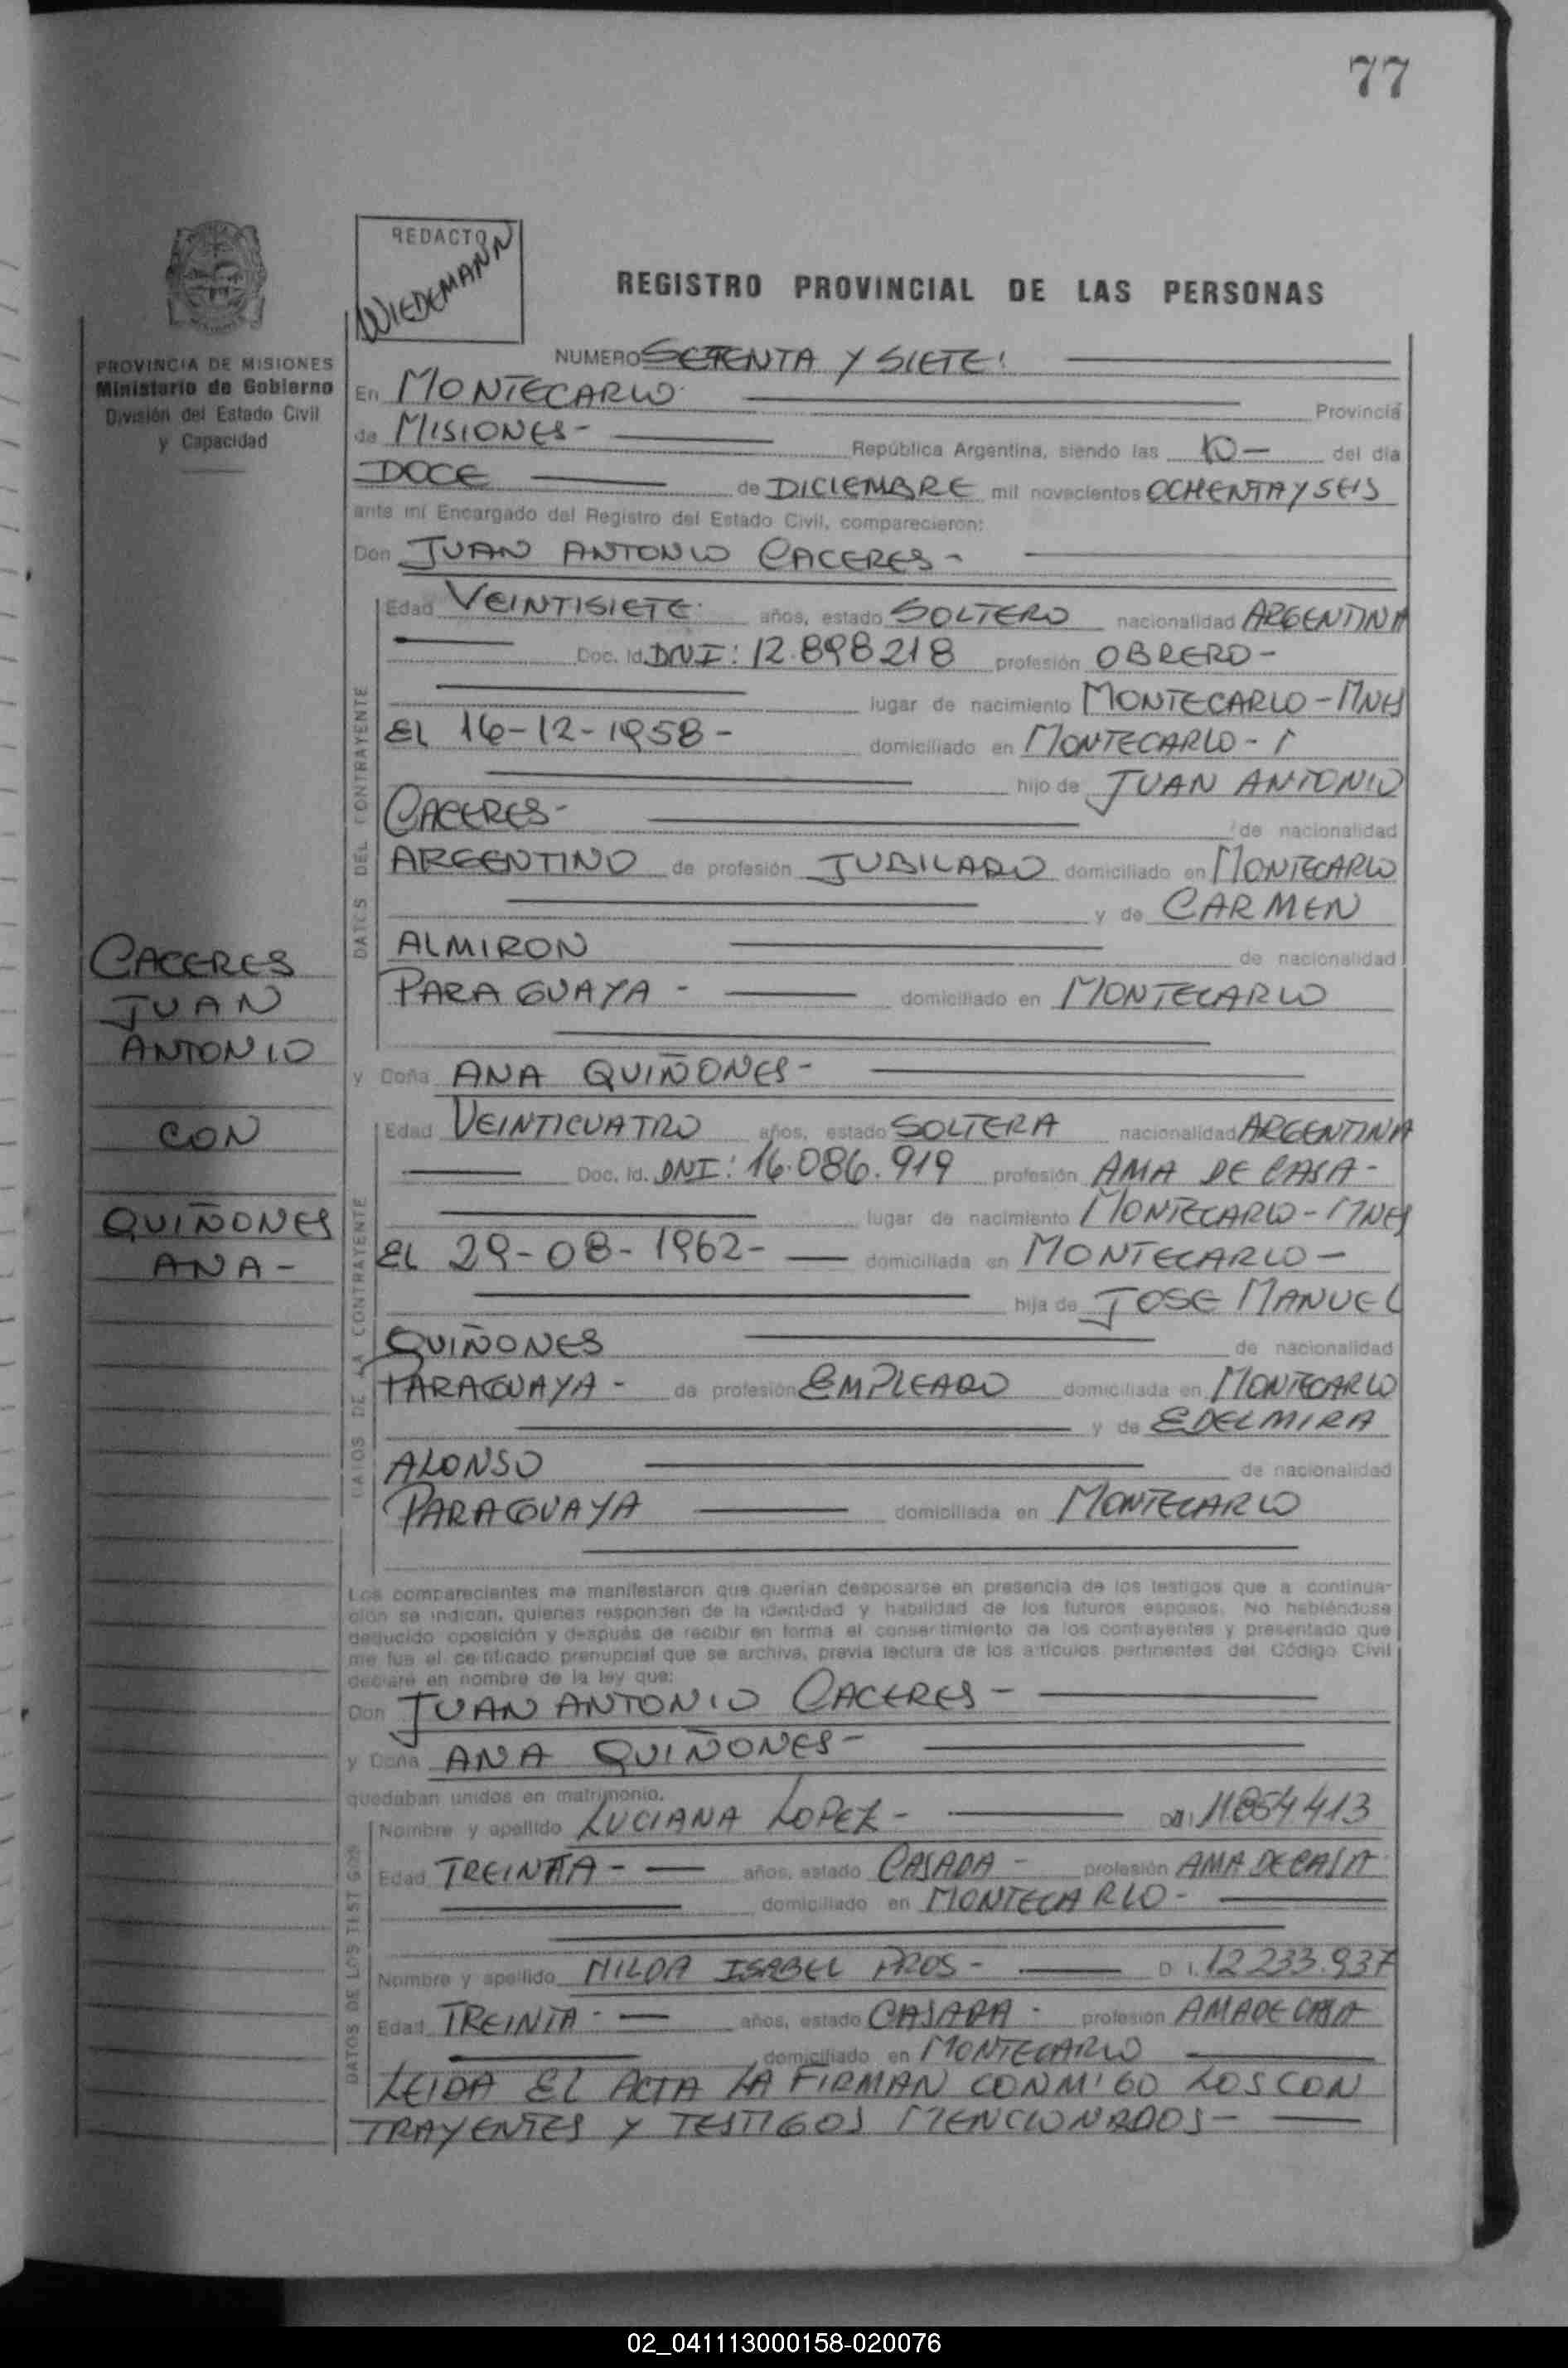 77
REDACTO
WIEDEMANN
REGISTRO PROVINCIAL DE LAS PERSONAS
PROVINCIA DE MISIONES
Ministerio de Gobierno
División del Estado Civil
y Capacidad
NUMERO SETENTA Y SIETE
En MONTECARLO Provincia
de MISIONES- República Argentina, siendo las 10- del día
DOCE de DICIEMBRE mil novecientos OCHENTA Y SEIS
ante mí Encargado del Registro del Estado Civil, comparecieron:
Don JUAN ANTONIO CACERES-
DATOS DEL CONTRAYENTE
Edad VEINTISIETE años, estado SOLTERO nacionalidad ARGENTINA
Doc. Id. DNI: 12.898218 profesión OBRERO-
lugar de nacimiento MONTECARLO-MNES
EL 16-12-1958- domiciliado en MONTECARLO-
hijo de JUAN ANTONIO
CACERES- de nacionalidad
ARGENTINO de profesión JUBILADO domiciliado en MONTECARLO
y de CARMEN
ALMIRON de nacionalidad
PARAGUAYA - domiciliado en MONTECARLO
CACERES
JUAN
ANTONIO
CON
QUIÑONES
ANA-
y Doña ANA QUIÑONES-
DATOS DE LA CONTRAYENTE
Edad VEINTICUATRO años, estado SOLTERA nacionalidad ARGENTINA
Doc. Id. DNI: 16.086.919 profesión AMA DE CASA-
lugar de nacimiento MONTECARLO-MNES
EL 29-08-1962- domiciliada en MONTECARLO-
hija de JOSE MANUEL
QUIÑONES de nacionalidad
PARAGUAYA- de profesión EMPLEADO domiciliada en MONTECARLO
y de EDELMIRA
ALONSO de nacionalidad
PARAGUAYA domiciliada en MONTECARLO
Los comparecientes me manifestaron que querían desposarse en presencia de los testigos que a continua-
ción se indican, quienes responden de la identidad y habilidad de los futuros esposos. No habiéndose
deducido oposición y después de recibir en forma el consentimiento de los contrayentes y presentado que
me fue el certificado prenupcial que se archiva, previa lectura de los artículos pertinentes del Código Civil
declaré en nombre de la ley que:
Don JUAN ANTONIO CACERES-
y Doña ANA QUIÑONES-
quedaban unidos en matrimonio.
DATOS DE LOS TESTIGOS
Nombre y apellido LUCIANA LOPEZ- 11.854.413
Edad TREINTA- años, estado CASADA- profesión AMA DE CASA
domiciliado en MONTECARLO-
Nombre y apellido NILDA ISABEL PROS- D. I. 12.233.937
Edad TREINTA- años, estado CASADA- profesión AMA DE CASA
domiciliado en MONTECARLO
LEIDA EL ACTA LA FIRMAN CONMIGO LOS CON
TRAYENTES Y TESTIGOS MENCIONADOS-
02_041113000158-020076